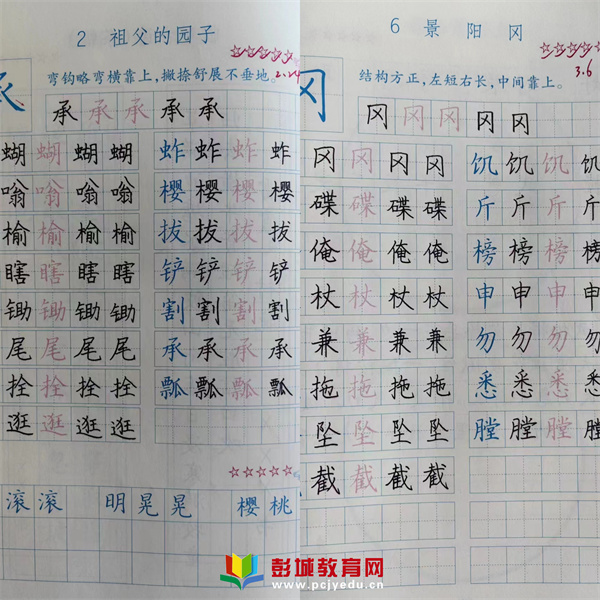 2 祖父的园子
2.24
承
弯钩略弯横靠上，撇捺舒展不垂地。
承 承 承 承 承
蝴 蝴 蝴 蝴 蚱 蚱 蚱 蚱
嗡 嗡 嗡 嗡 樱 樱 樱 樱
榆 榆 榆 榆 拔 拔 拔 拔
瞎 瞎 瞎 瞎 铲 铲 铲 铲
锄 锄 锄 锄 割 割 割 割
尾 尾 尾 尾 承 承 承 承
拴 拴 拴 拴 瓢 瓢 瓢 瓢
逛 逛 逛 逛
滚 滚 明 晃 晃 樱 桃
6 景阳冈
3.6
冈
结构方正，左短右长，中间靠上。
冈 冈 冈 冈 冈
冈 冈 冈 冈 饥 饥 饥 饥
碟 碟 碟 碟 斤 斤 斤 斤
俺 俺 俺 俺 榜 榜 榜 榜
杖 杖 杖 杖 申 申 申 申
兼 兼 兼 兼 勿 勿 勿 勿
拖 拖 拖 拖 悉 悉 悉 悉
坠 坠 坠 坠 膛 膛 膛 膛
截 截 截 截
彭城教育网
www.pcjyedu.cn